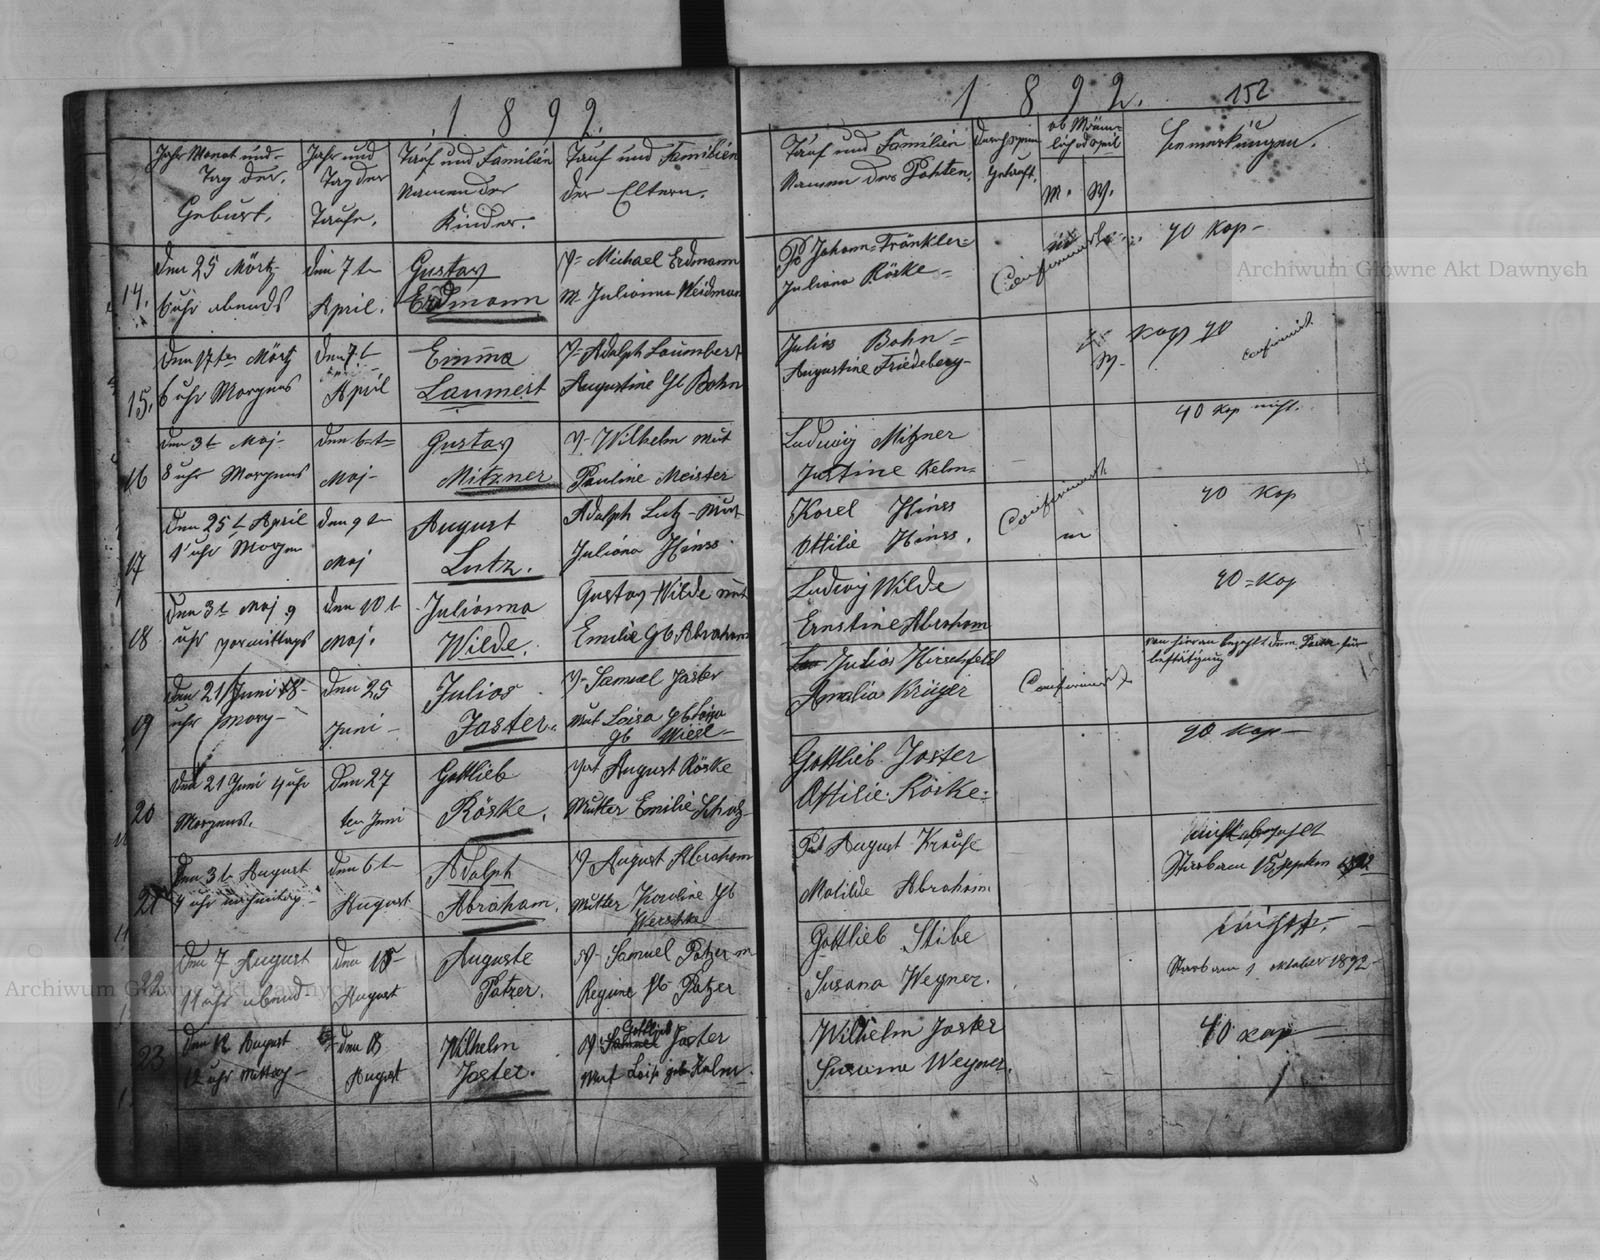 1 8 9 2.
Jahr Monat und
Tag der
Geburt.
Jahr und
Tag der
Taufe.
Tauf und Familien
Namen der
Kinder.
Tauf und Familien
der Eltern.
14.
Den 25 Mörtz
6 uhr abends
den 7 t
April.
Gustav
Erdmann
V= Michael Erdmann
M. Julianna Weidman
15.
Den 17ten Mörtz
6 uhr Morgens
den 7 t
April
Emma
Laumert
V= Adolph Laumbert
Augustine Gb Bohn
16
den 3 t Maj
8 uhr Morgens
den 6 t
Maj
Gustav
Mitzner
V. Wilhelm mut
Pauline Meister
17
Den 25 t April
1 uhr Morgen
den 9 t
Maj
August
Lutz.
Adolph Lutz - Mut
Juliana Hinss.
18
den 3 t Maj 9
uhr vormittags
den 10 t
Maj.
Julianna
Wilde.
Gustav Wilde mut
Emilie Gb Abraham
19
den 21 Juni 8
uhr Morg
den 25
Juni
Julios
Jaster.
V Samuel Jaster
Mut Loisa Gb
gb Wiesl
20
den 21 Juni 4 uhr
Morgens.
den 27
ten Juni
Gottlieb
Röske.
Vat August Röske
Mutter Emilie Scholz
21
Den 3 t August
4 uhr nachmitag
den 6 t
August
Adolph
Abraham.
V August Abraham
Mutter Karoline Gb
22
den 7 August
11 uhr abend
den 15
August
Auguste
Patzer.
V. Samuel Patzer m
Regine Gb Patzer
23
den 12 August
12 uhr Mittag
den 18
August
Wilhelm
Jaster.
Gottlieb
V Samuel Jaster
Mut Loise geb Kelm.
1 8 9 2.
152
Tauf und Familien
Namen der Pahten.
Getauft.
ob Männ-
M.
W.
Bemerkungen.
Johann Fränkler
Juliana Röske
Confirmirt
40 Kop
Julios Bohn
Augustine Friedeberg
W.
Kop 40
Confirmirt
Ludwig Mitzner
Justine Kelm
40 Kop nicht.
Karel Hinss
Ottilie Hinss.
Confirmirt
m
40 Kop
Ludwig Wilde
Ernstine Abraham
40 = Kop
Julios Hirschfeld
Amalia Krüger
Confirmirt
Gottlieb Jaster
Ottilie Röske.
90 Kop
Pat August Krause
Matilde Abraham.
Nicht bezahlt
Starb am 15 Septem 1892
Gottlieb Stibe
Susana Wegner.
nicht.
Starb am 1 oktober 1892
Wilhelm Jaster
Susanna Wegner.
40 Kop
Archiwum Główne Akt Dawnych
Archiwum Główne Akt Dawnych